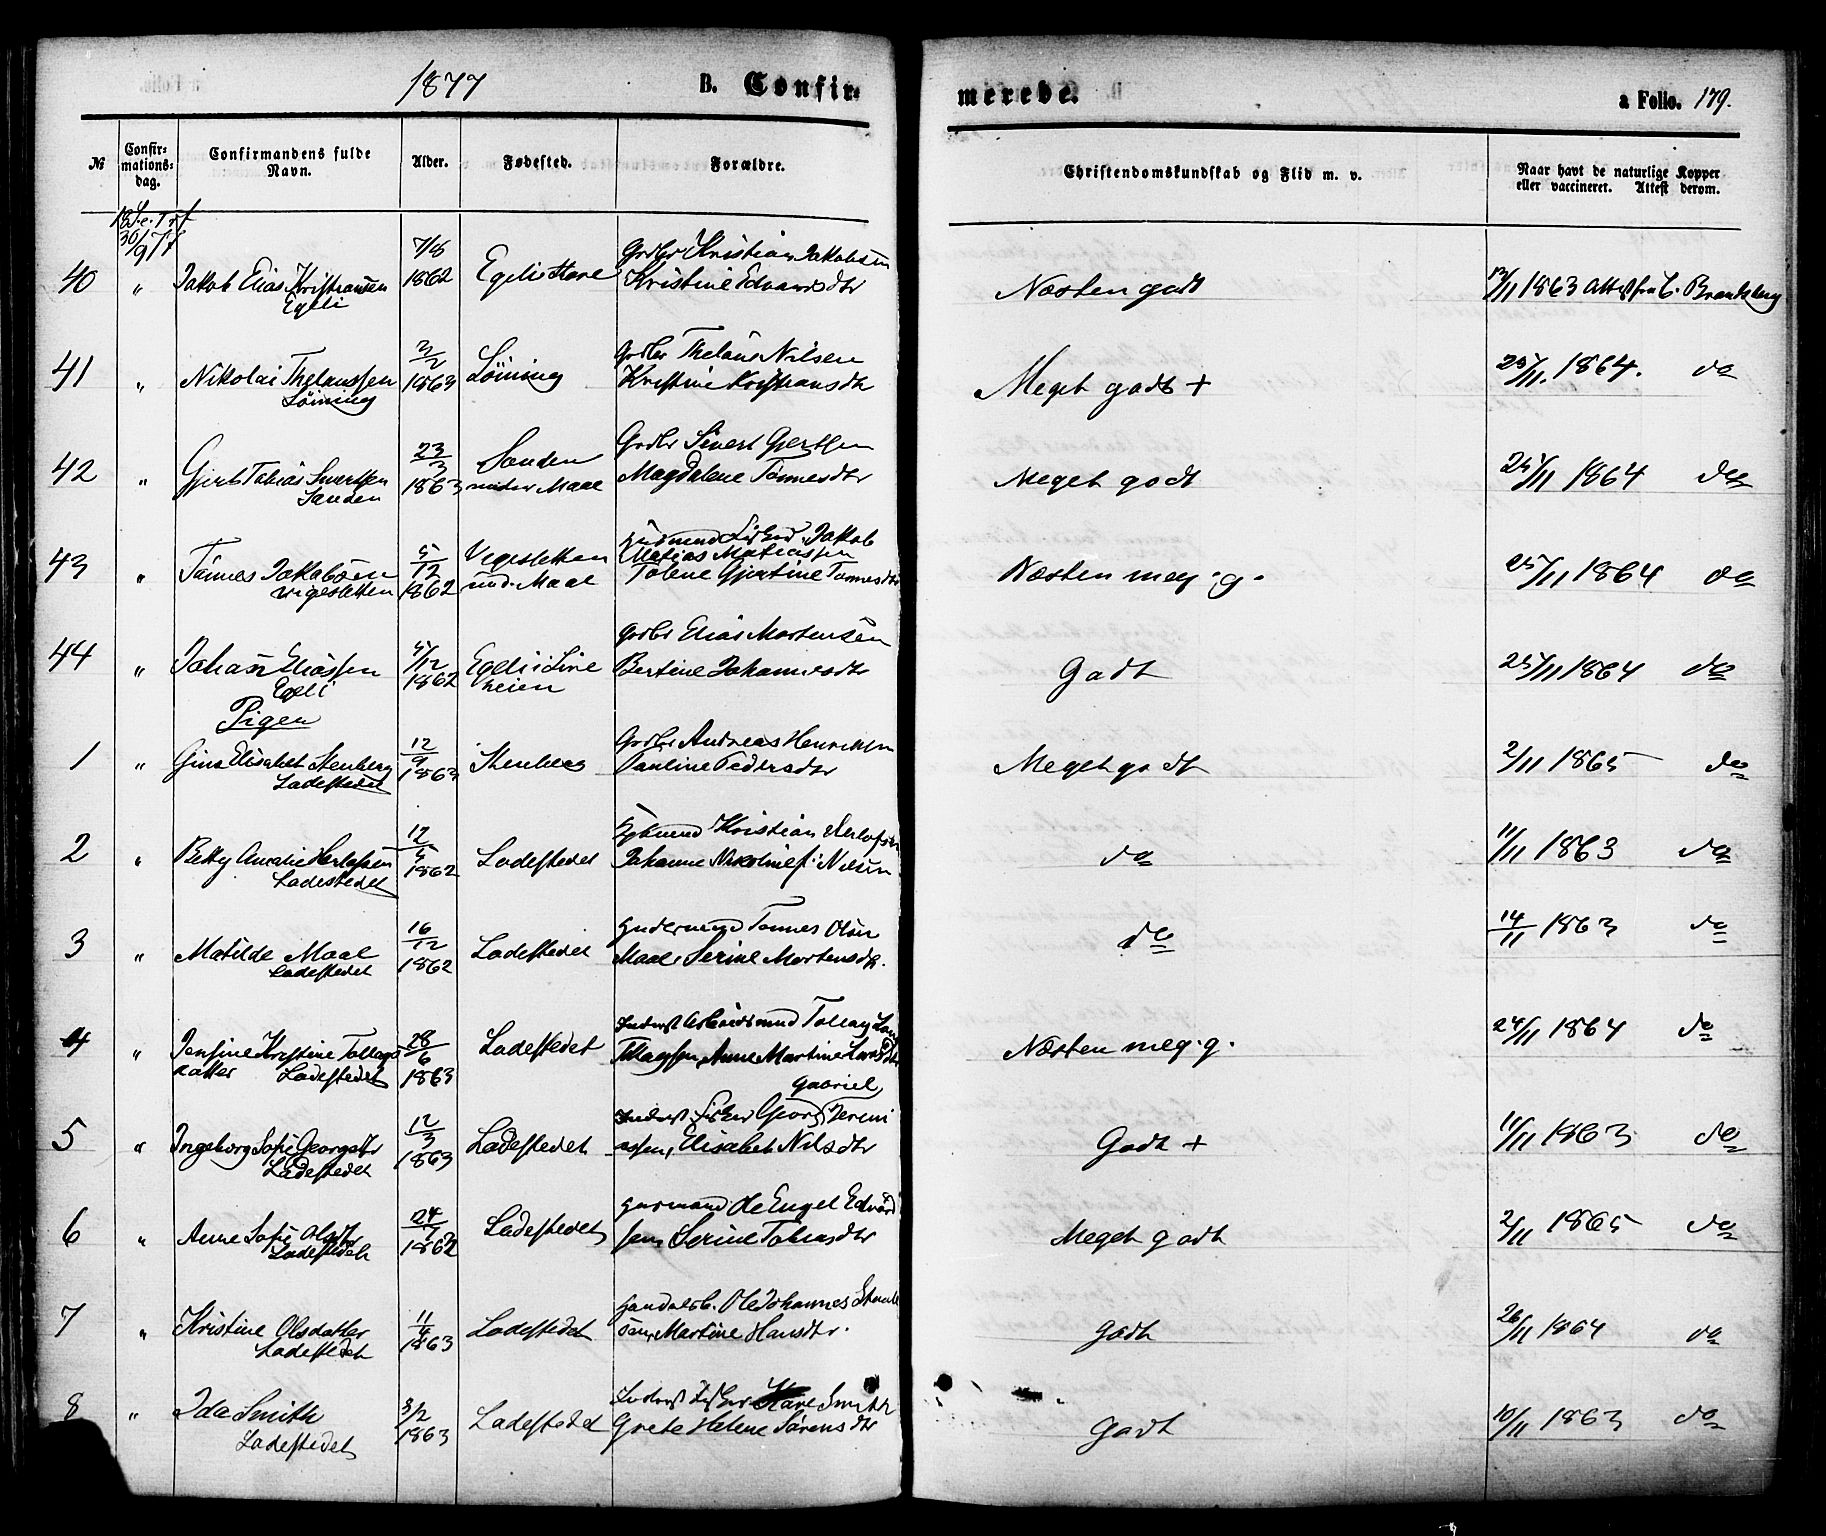 1877 B. Confirmerede. a Folio. 179.
№ Confirmationsdag. Confirmandens fulde Navn. Alder. Fødested. Forældre. Christendomskundskab og Flid m. v. Naar havt de naturlige Kopper eller vaccineret. Attest derom.
18 S. e. Trf
30/9 77
40 " Jakob Elias Kristiansen 7/8 1862 Egeli Grdbr Kristian Jakobsen
Egeli Kristine Edvardsdtr Næsten godt 12/11 1863 Attest fra C. Brandsberg
41 " Nikolai Thelaussen 3/2 1863 Löining Grdbr Thelaus Nilsen
Löining Kristine Kristiansdtr Meget godt + 25/11. 1864. do
42 " Gjert Tobias Sivertsen 23/3 1863 Sanden Grdbr Sivert Gjertsen
Sanden under Maal Magdalene Tönnesdtr Meget godt 25/11 1864 do
43 " Tönnes Jakobsen 5/12 1862 Vegesletten Jakob
Vegesletten und. Maal Matias Matiassen
Tolene Gjertine Tönnesdtr Næsten meg. g. 25/11 1864 do
44 " Johan Eliassen 5/12 1862 Egeli i Lire Grdbr Elias Mortensen
Egeli heien Bertine Johannesdtr Godt 25/11 1864 do
Pigen
1 " Gina Elisabet Stenberg 12/9 1863 Stenberg Grdbr Andreas Henriksen
Ladestedet Pauline Pedersdtr Meget godt 2/11 1865 do
2 " Betty Amalie Herlofsen 12/5 1862 Ladestedet Kristian Herlofsen
Ladestedet Johanne Nikoline f. Nilsen do 11/11 1863 do
3 " Matilde Maal 16/12 1862 Ladestedet Tönnes Olsen
Ladestedet Maal, Serine Mortensdtr. do 14/11 1863 do
4 " Jensine Kristine Tollags 28/6 1863 Ladestedet Inderst Arbeidsmand Tollag
datter Ladestedet Tollagsen, Anne Martine Larsdtr Næsten meg. g. 24/11 1864 do
Gabriel
5 " Ingeborg Sofie Georgsdtr 12/3 1863 Ladestedet Inderst Fisker Georg Jeremi
Ladestedet assen, Elisabet Nilsdtr Godt + 11/11 1863 do
6 " Anne Sofie Olsdtr 24/7 1862 Ladestedet Husmand Ole Engel Edvard
Ladestedet sen, Serine Tobiasdtr Meget godt 2/11 1865 do
7 " Kristine Olsdatter 11/4 1863 Ladestedet Handelsb. Ole Johannes
Ladestedet Martine Hansdtr. Godt 26/11 1864 do
8 " Ida Smith 3/2 1863 Ladestedet Inderst Fisker Smith
Ladestedet Grete Helene Sörensdtr Godt 10/11 1863 do